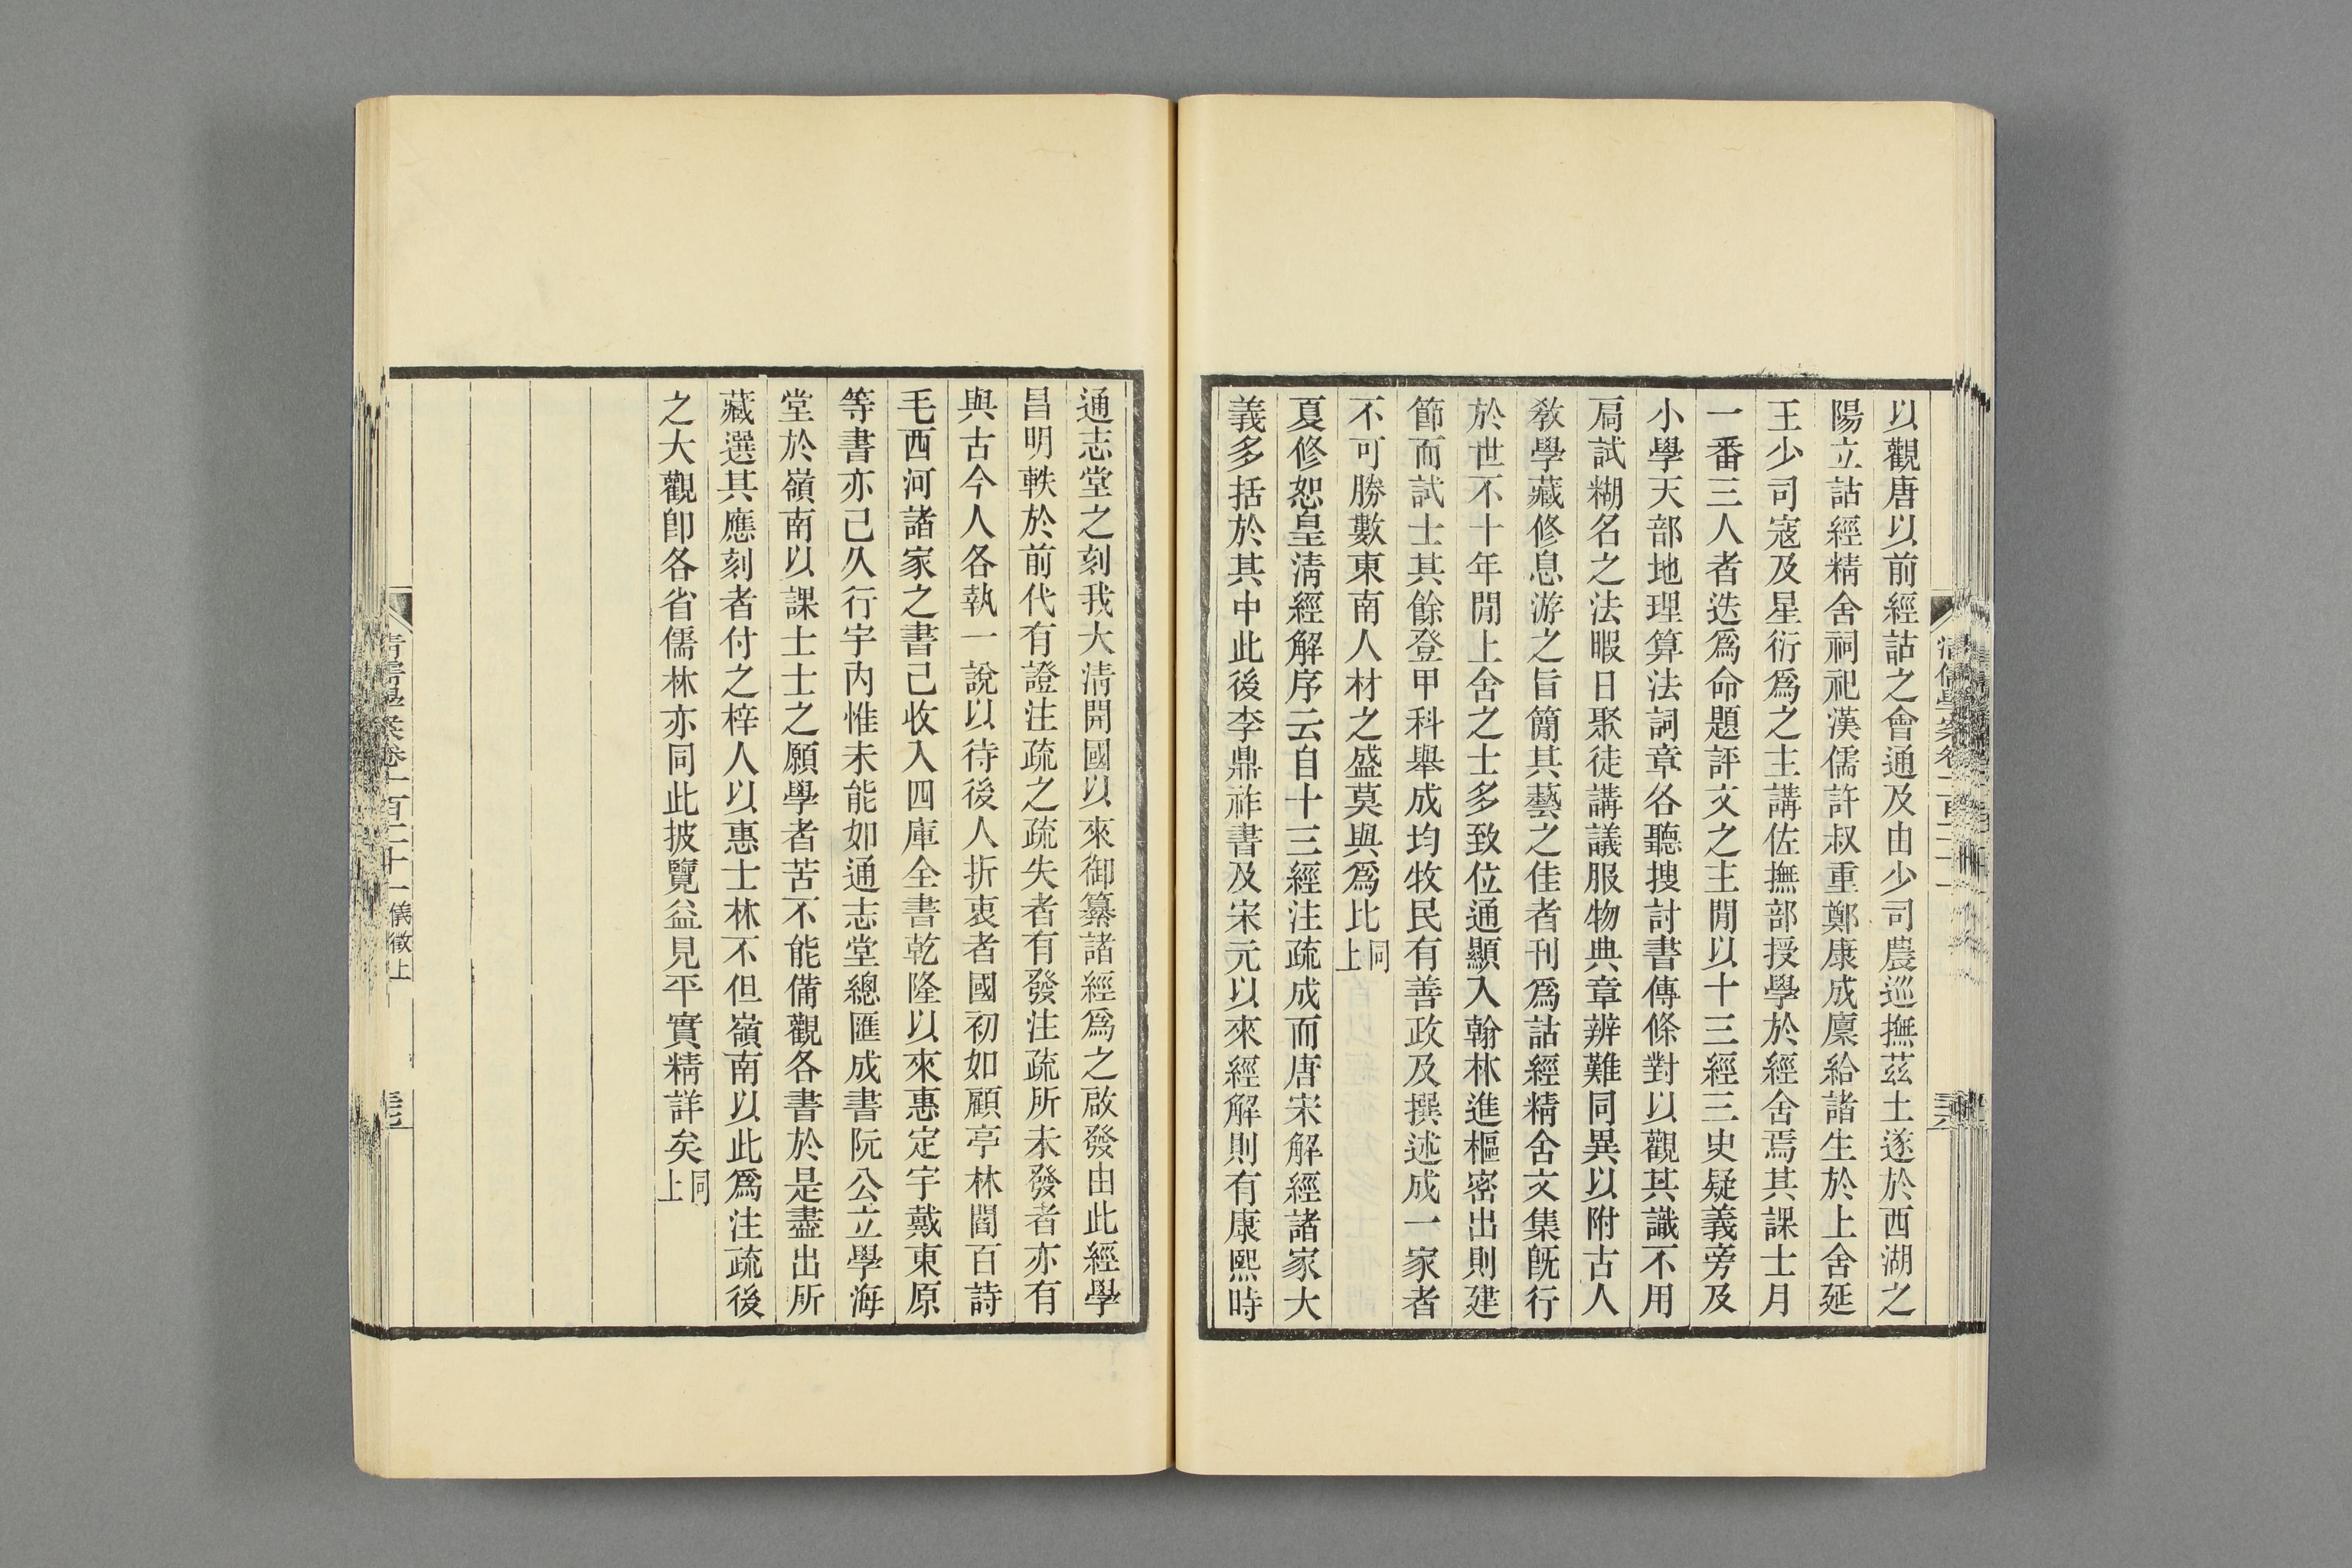 以觀唐以前經詁之會通及由少司農巡撫茲土遂於西湖之
陽立詁經精舍祠祀漢儒許叔重鄭康成廩給諸生於上舍延
王少司寇及星衍爲之主講佐撫部授學於經舍焉其課士月
一番三人者迭爲命題評文之主閒以十三經三史疑義旁及
小學天部地理算法詞章各聽搜討書傳條對以觀其識不用
扃試糊名之法暇日聚徒講議服物典章辨難同異以附古人
敎學藏修息游之旨簡其藝之佳者刊爲詁經精舍文集旣行
於世不十年閒上舍之士多致位通顯入翰林進樞密出則建
節而試士其餘登甲科舉成均牧民有善政及撰述成一家者
不可勝數東南人材之盛莫與爲比同上
夏修恕皇淸經解序云自十三經注疏成而唐宋解經諸家大
義多括於其中此後李鼎祚書及宋元以來經解則有康熙時
通志堂之刻我大淸開國以來御纂諸經爲之啟發由此經學
昌明軼於前代有證注疏之疏失者有發注疏所未發者亦有
與古今人各執一說以待後人折衷者國初如顧亭林閻百詩
毛西河諸家之書己收入四庫全書乾隆以來惠定宇戴東原
等書亦己久行宇內惟未能如通志堂總匯成書阮公立學海
堂於嶺南以課士士之願學者苦不能備觀各書於是盡出所
藏選其應刻者付之梓人以惠士林不但嶺南以此爲注疏後
之大觀卽各省儒林亦同此披覽益見平實精詳矣同上
淸儒學案卷一百二十一 儀徵上